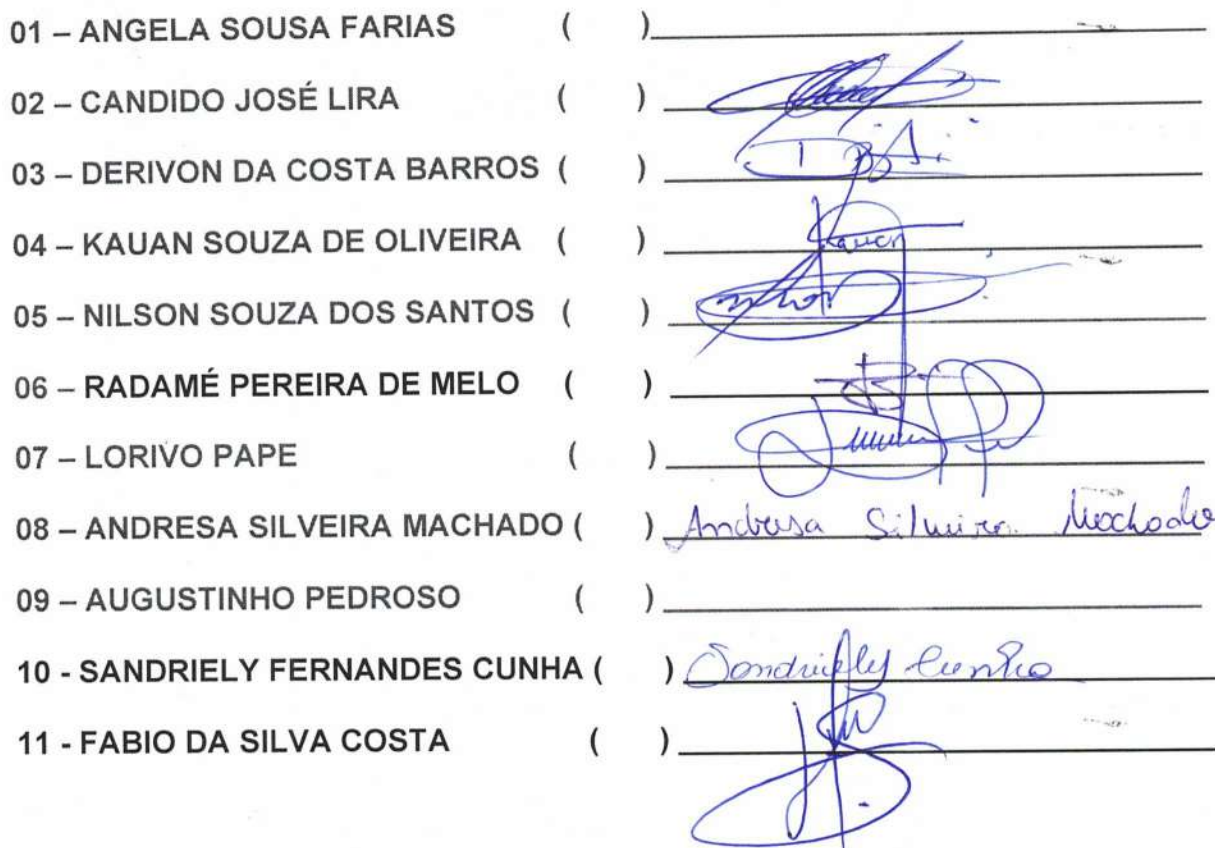 01 – ANGELA SOUSA FARIAS ( )
02 – CANDIDO JOSÉ LIRA ( )
03 – DERIVON DA COSTA BARROS ( )
04 – KAUAN SOUZA DE OLIVEIRA ( ) Kauan
05 – NILSON SOUZA DOS SANTOS ( )
06 – RADAMÉ PEREIRA DE MELO ( )
07 – LORIVO PAPE ( )
08 – ANDRESA SILVEIRA MACHADO ( ) Andresa Silveira Machado
09 – AUGUSTINHO PEDROSO ( )
10 - SANDRIELY FERNANDES CUNHA ( ) Sandriely Cunha
11 - FABIO DA SILVA COSTA ( )